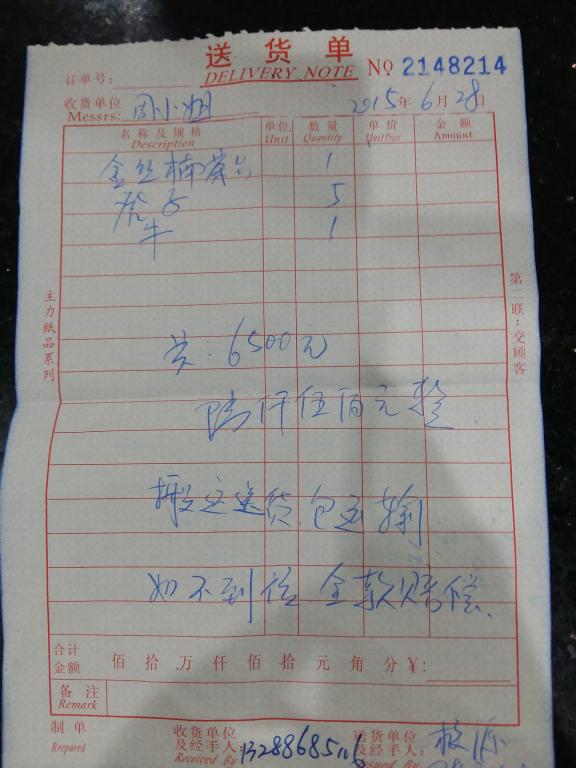 送货单
DELIVERY NOTE № 2148214
订单号:
收货单位 周小姐
Messrs:
2015年6月28日
名称及规格 单位 数量 单价 金额
Description Unit Quantity UnitPrice Amount
金丝楠 1
虎子 5
牛 1
共:6500元
陆仟伍佰元整.
搬运送货.包运输
如不到位.全款赔偿.
主力纸品系列
第二联:交顾客
合计
金额 佰拾万仟佰拾元角分¥:
备注
Remark
制单 收货单位 送货单位
及经手人: 及经手人:
Rrepared Received By Issued By